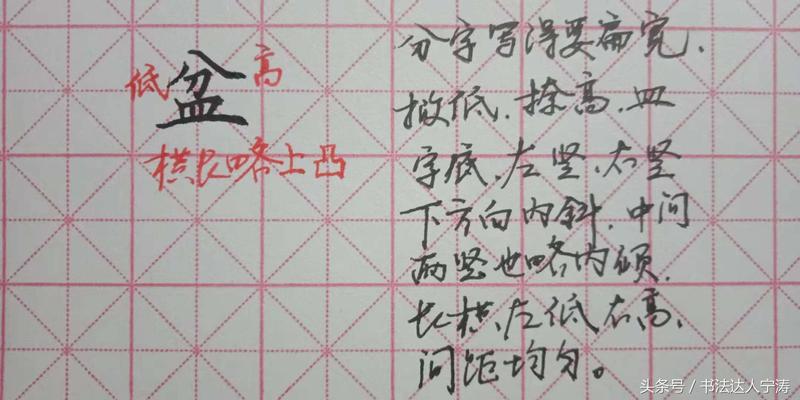 盆
低
高
横长略上凸
分字写得要扁宽.
撇低.捺高.皿
字底.左竖.右竖
下方向内斜.中间
两竖也略内倾.
长横.左低右高.
间距均匀。
头条号 / 书法达人宁涛